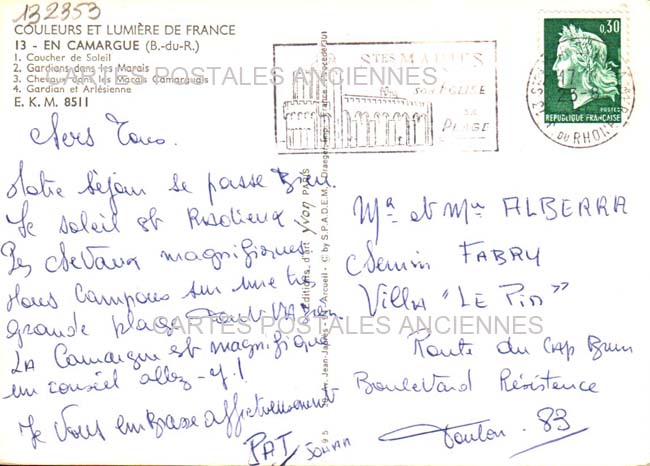 132353
COULEURS ET LUMIÈRE DE FRANCE
13 - EN CAMARGUE (B.-du-R.)
1. Coucher de Soleil
2. Gardians dans les Marais
3. Chevaux dans les Marais Camarguais
4. Gardian et Arlésienne
E. K. M. 8511
STES MARIES
SON EGLISE
SA
PLAGE
0,30
POSTES
REPUBLIQUE FRANÇAISE
DU RHONE
CARTES POSTALES ANCIENNES
Notre séjour se passe Bien.
Le soleil est Radieux
Les chevaux magnifiques
Nous Campons sur une très
grande plage. Tout va Bien
LA Camargue est magnifique
un conseil allez-y!
Je Vous embrasse affectueusement
PAT
Éditions d'art yvon PARIS
Mr et Mme ALBERRA
Chemin FABRY
Villa "LE PIN"
Route du Cap Brun
Boulevard Résistence
Toulon. 83
CARTES POSTALES ANCIENNES